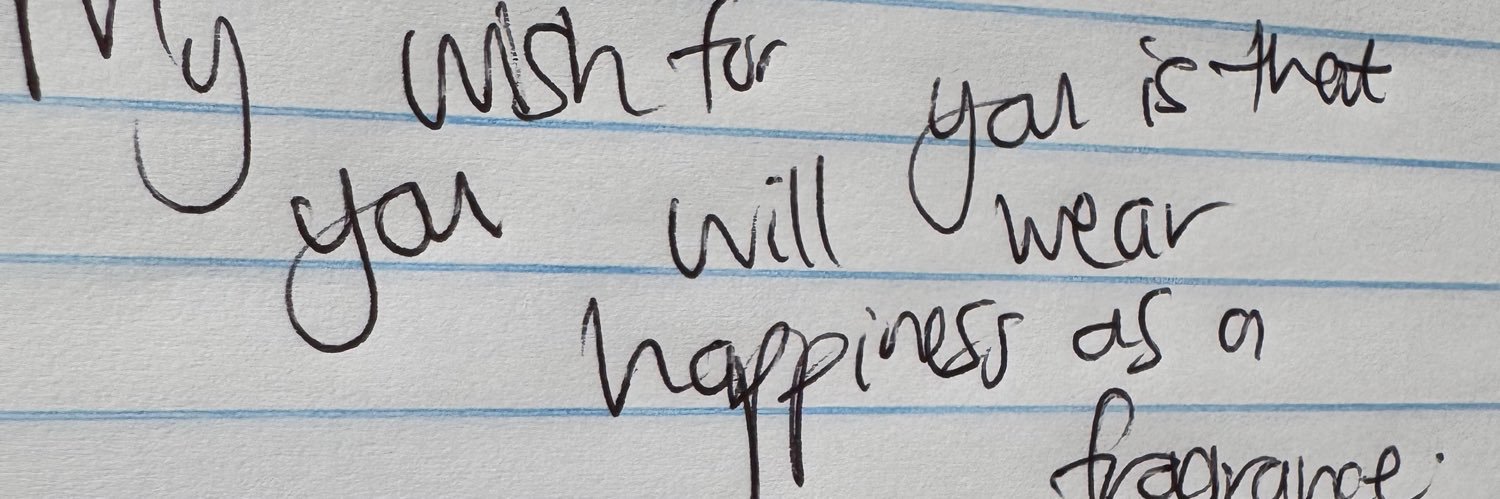 My wish for you is that
you will wear
happiness as a
fragrance.